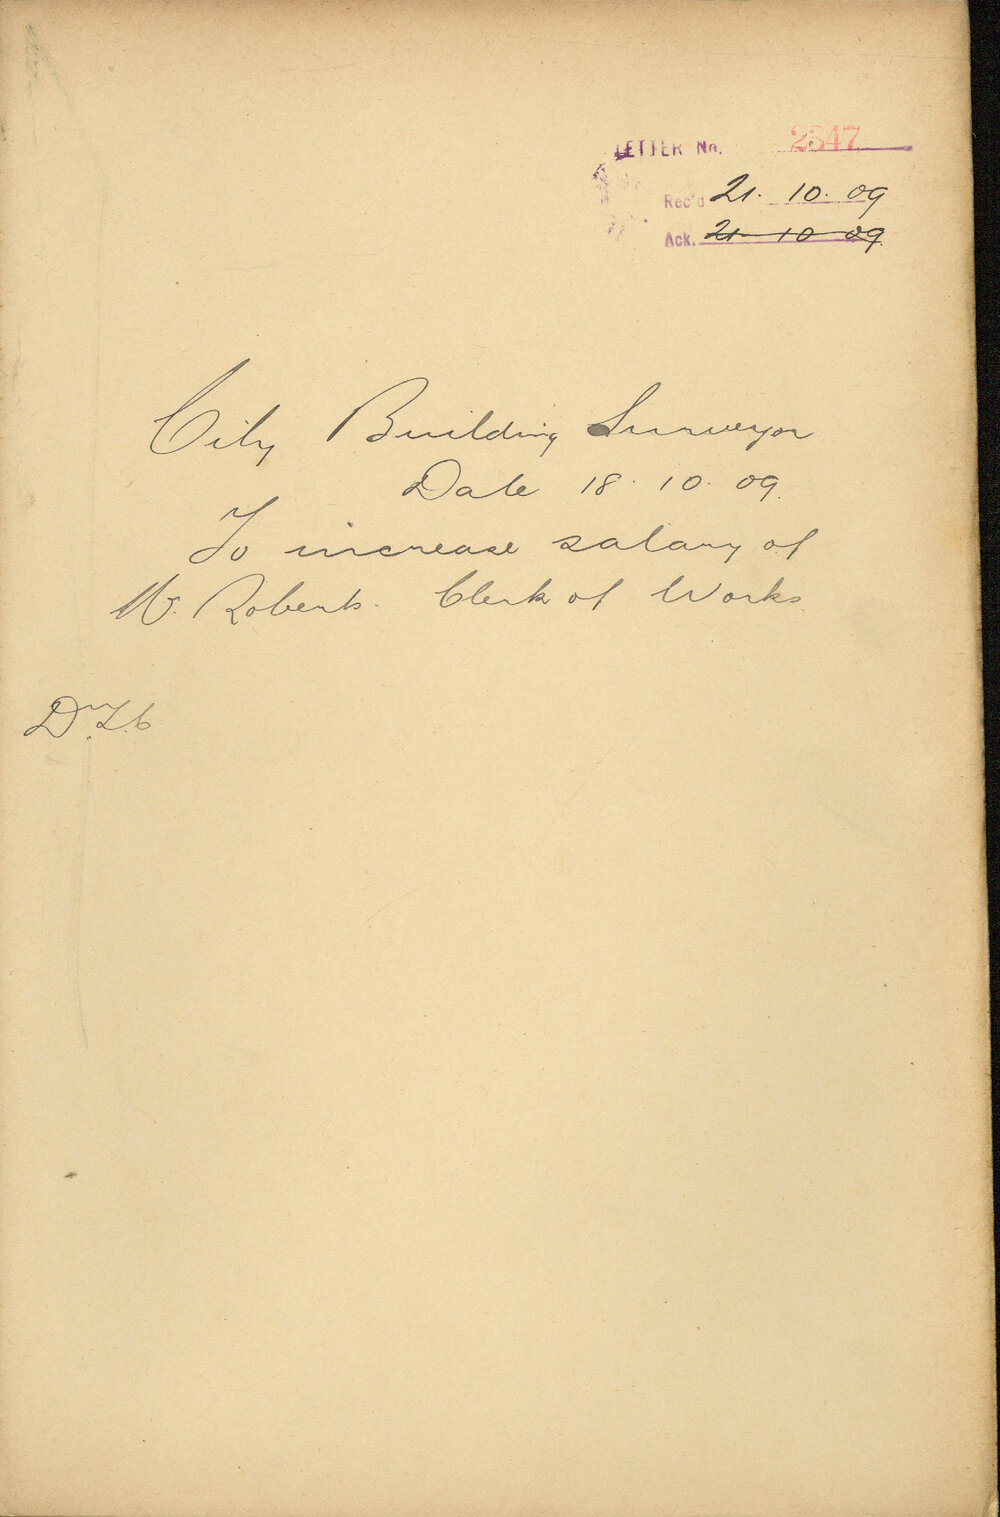 LETTER No. 2847
Rec'd 21. 10. 09
Ack. 21 10 09
City Building Surveyor
Date 18. 10. 09.
To increase salary of
W. Roberts. Clerk of Works